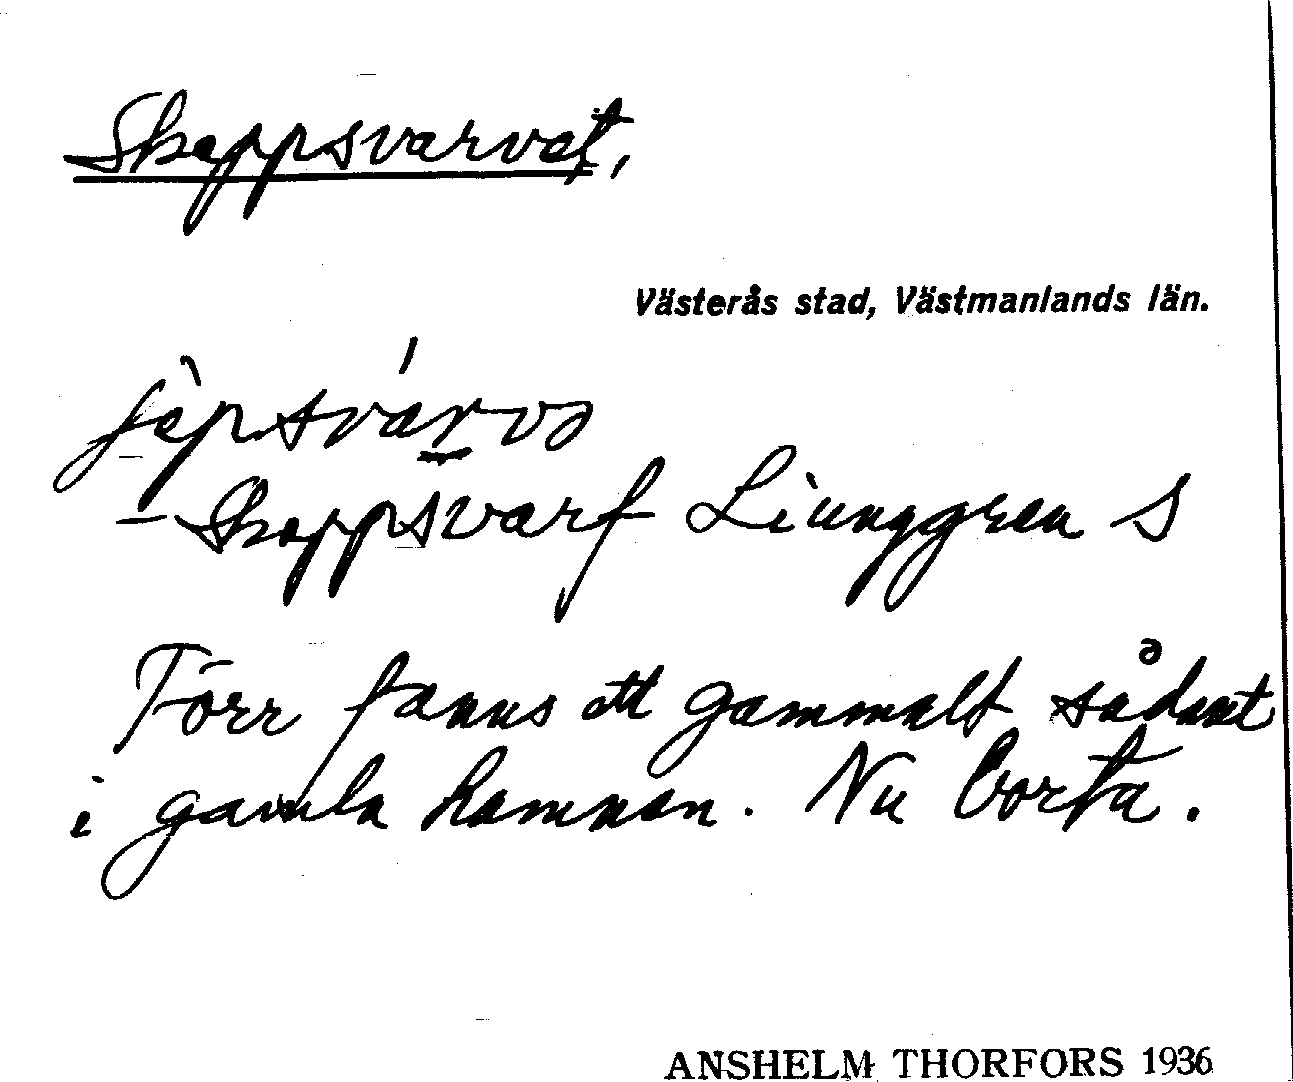 Skeppsvarvet,
Västerås stad, Västmanlands län.
– Skeppsvarf Liunggren S
Förr fanns ett gammalt sådant
i gamla hamnen. Nu borta.
ANSHELM THORFORS 1936